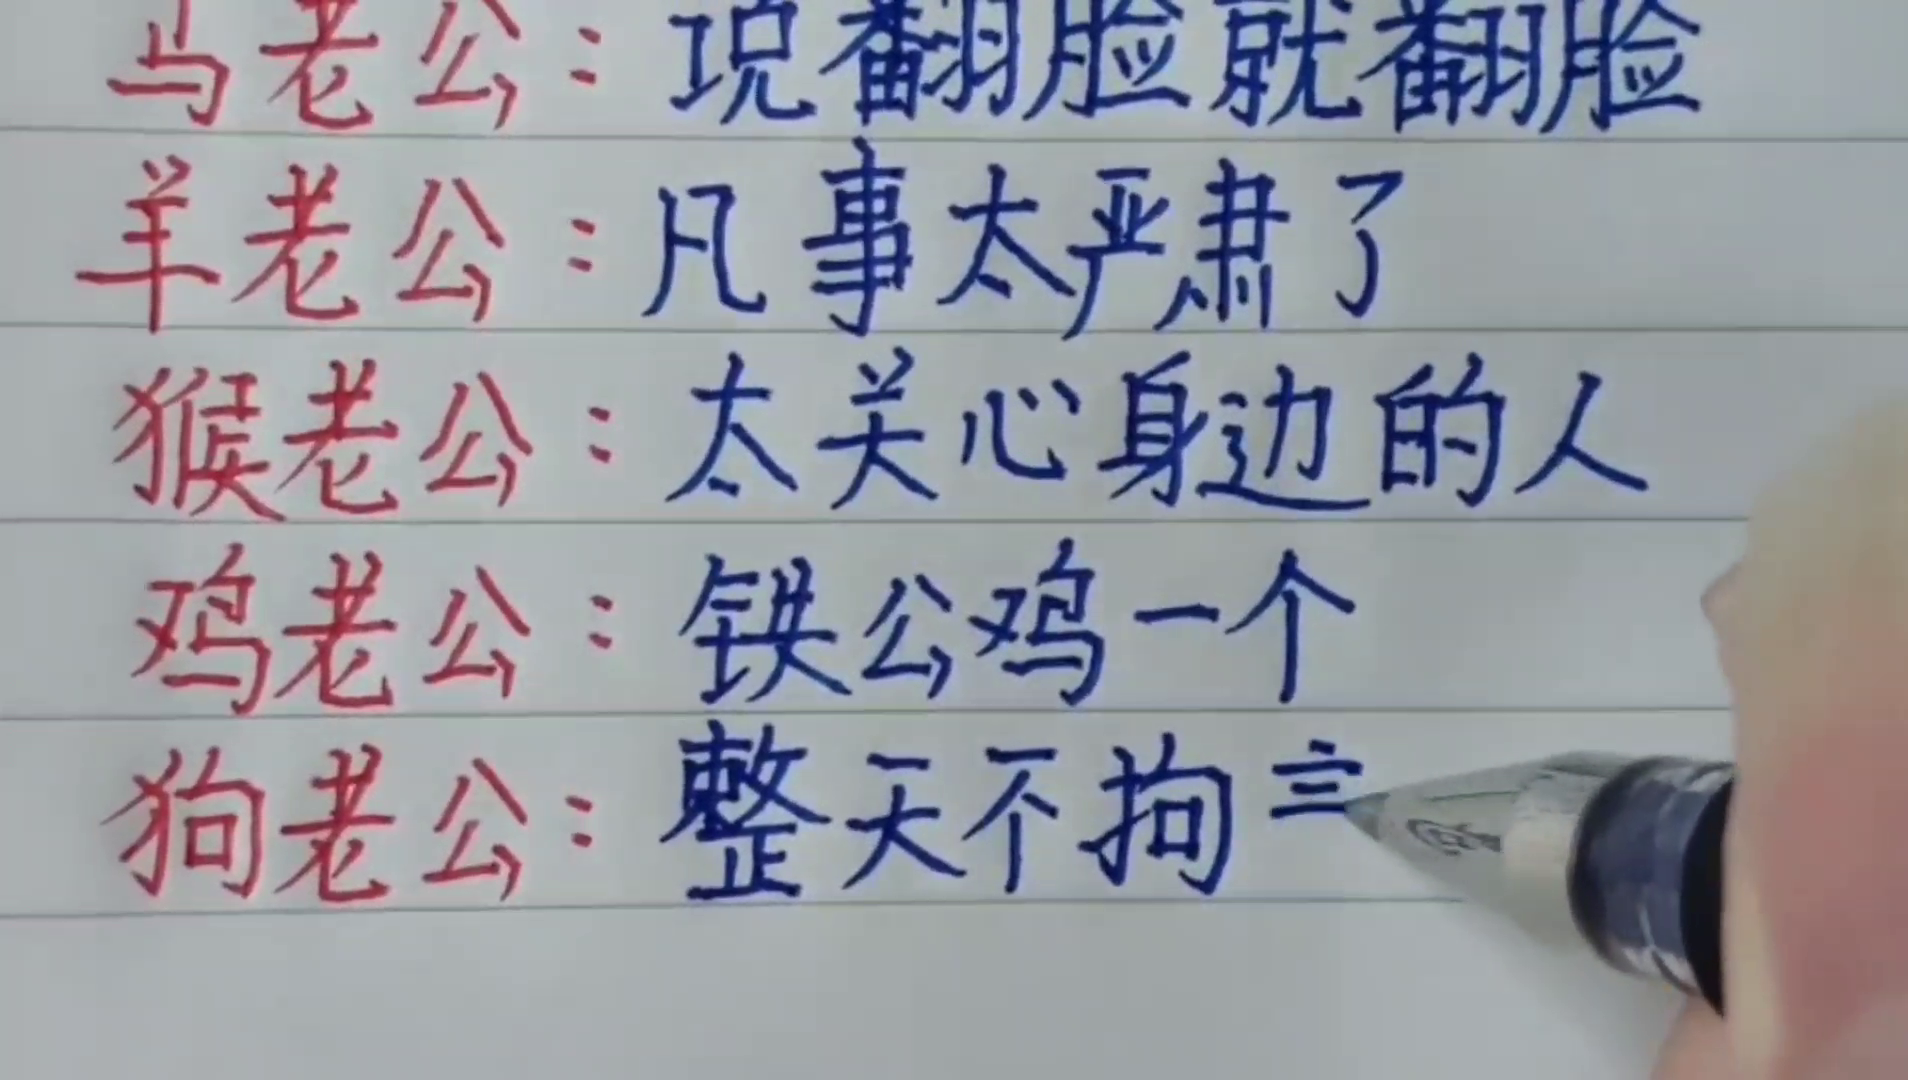 马老公：说翻脸就翻脸
羊老公：凡事太严肃了
猴老公：太关心身边的人
鸡老公：铁公鸡一个
狗老公：整天不拘